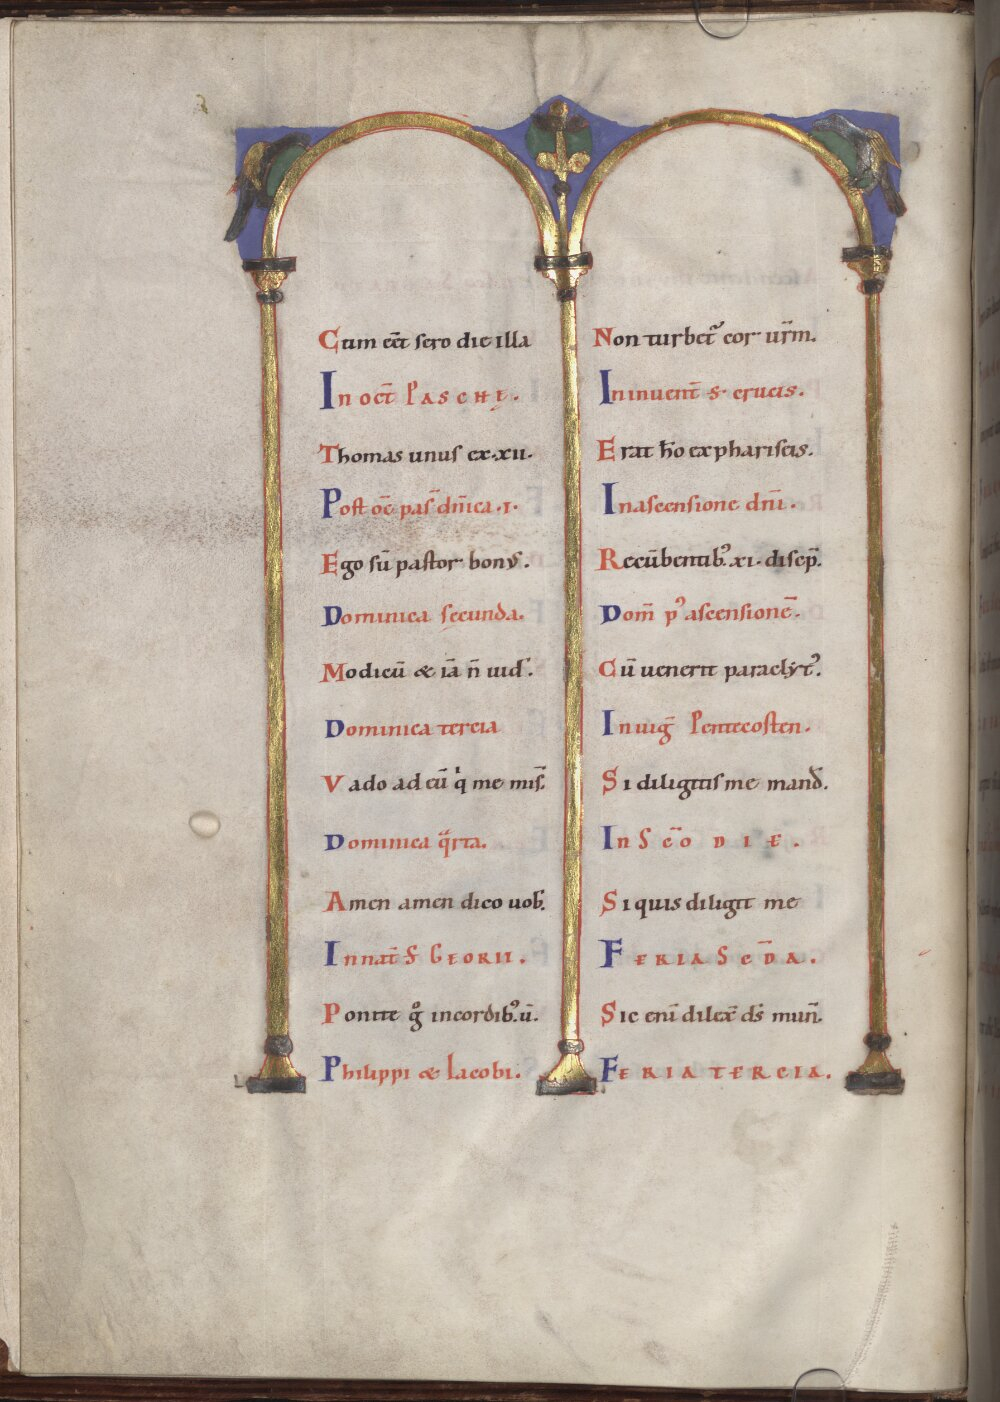 Cum eēt sero die illa
In oct̄ Paschę.
Thomas unus ex·xii·
Post oc̄ pas̄ dn̄ica·i·
Ego sū pastor bonꝰ.
Dominica secunda.
Modicū & iā n̄ uid'.
Dominica tercia
Vado ad eū qͥ me mis̄.
Dominica qͣrta.
Amen amen dico uob'.
In nat̄ S Georii.
Ponite gͦ in cordibꝰ.ū.
Philippi & Iacobi.
Non turbet᷑ cor ur̄m.
In inuent̄ s· crucis.
Erat ħo ex phariseis.
In ascensione dn̄i.
Recūbentibꝰ.xi·discip̄.
Dom̄ pꝰ ascensionē.
Cū uenerit paraclytꝰ.
In uig̅ Pentecosten.
Si diligitis me mand̄.
In Sc̄o die.
Si quis diligit me
Feria Sc̄da.
Sic eni̅ dilex̄ ds̄ mun̄.
Feria tercia.